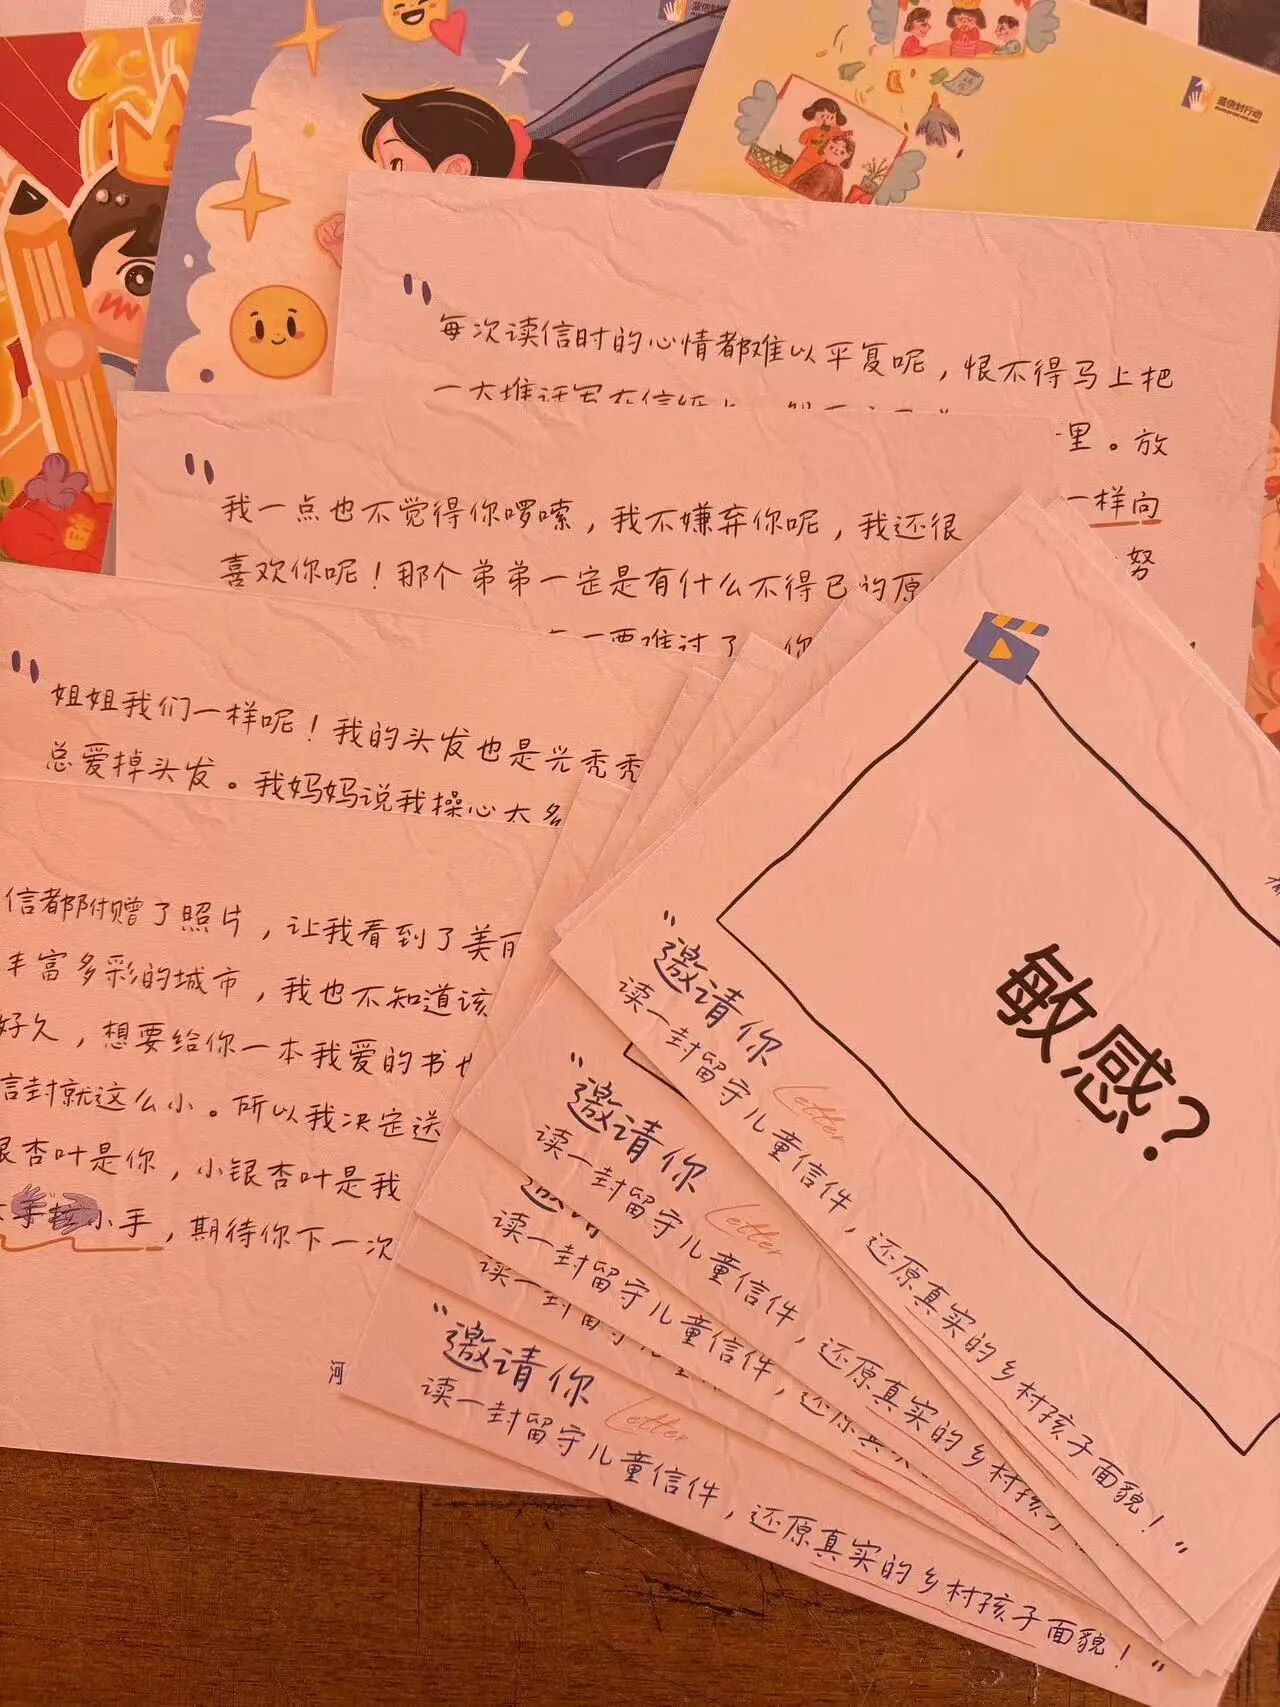 蓝信封行动
每次读信时的心情都难以平复呢，恨不得马上把
里。放
一样向
努
我一点也不觉得你啰嗦，我不嫌弃你呢，我还很
喜欢你呢！那个弟弟一定是有什么不得已的原
姐姐我们一样呢！我的头发也是光秃秃
总爱掉头发。我妈妈说我操心太多
信都附赠了照片，让我看到了美丽
丰富多彩的城市，我也不知道该
好久，想要给你一本我爱的书
信封就这么小。所以我决定送
银杏叶是你，小银杏叶是我
小手，期待你下一次
河
敏感？
"邀请你
Letter
读一封留守儿童信件，还原真实的乡村孩子面貌！"
"邀请你
Letter
读一封留守儿童信件，还原真实的乡村孩
读一封留守儿童信件，还原
"邀请你
Letter
读一封留守儿童信件，还原真实的乡村孩子面貌！"